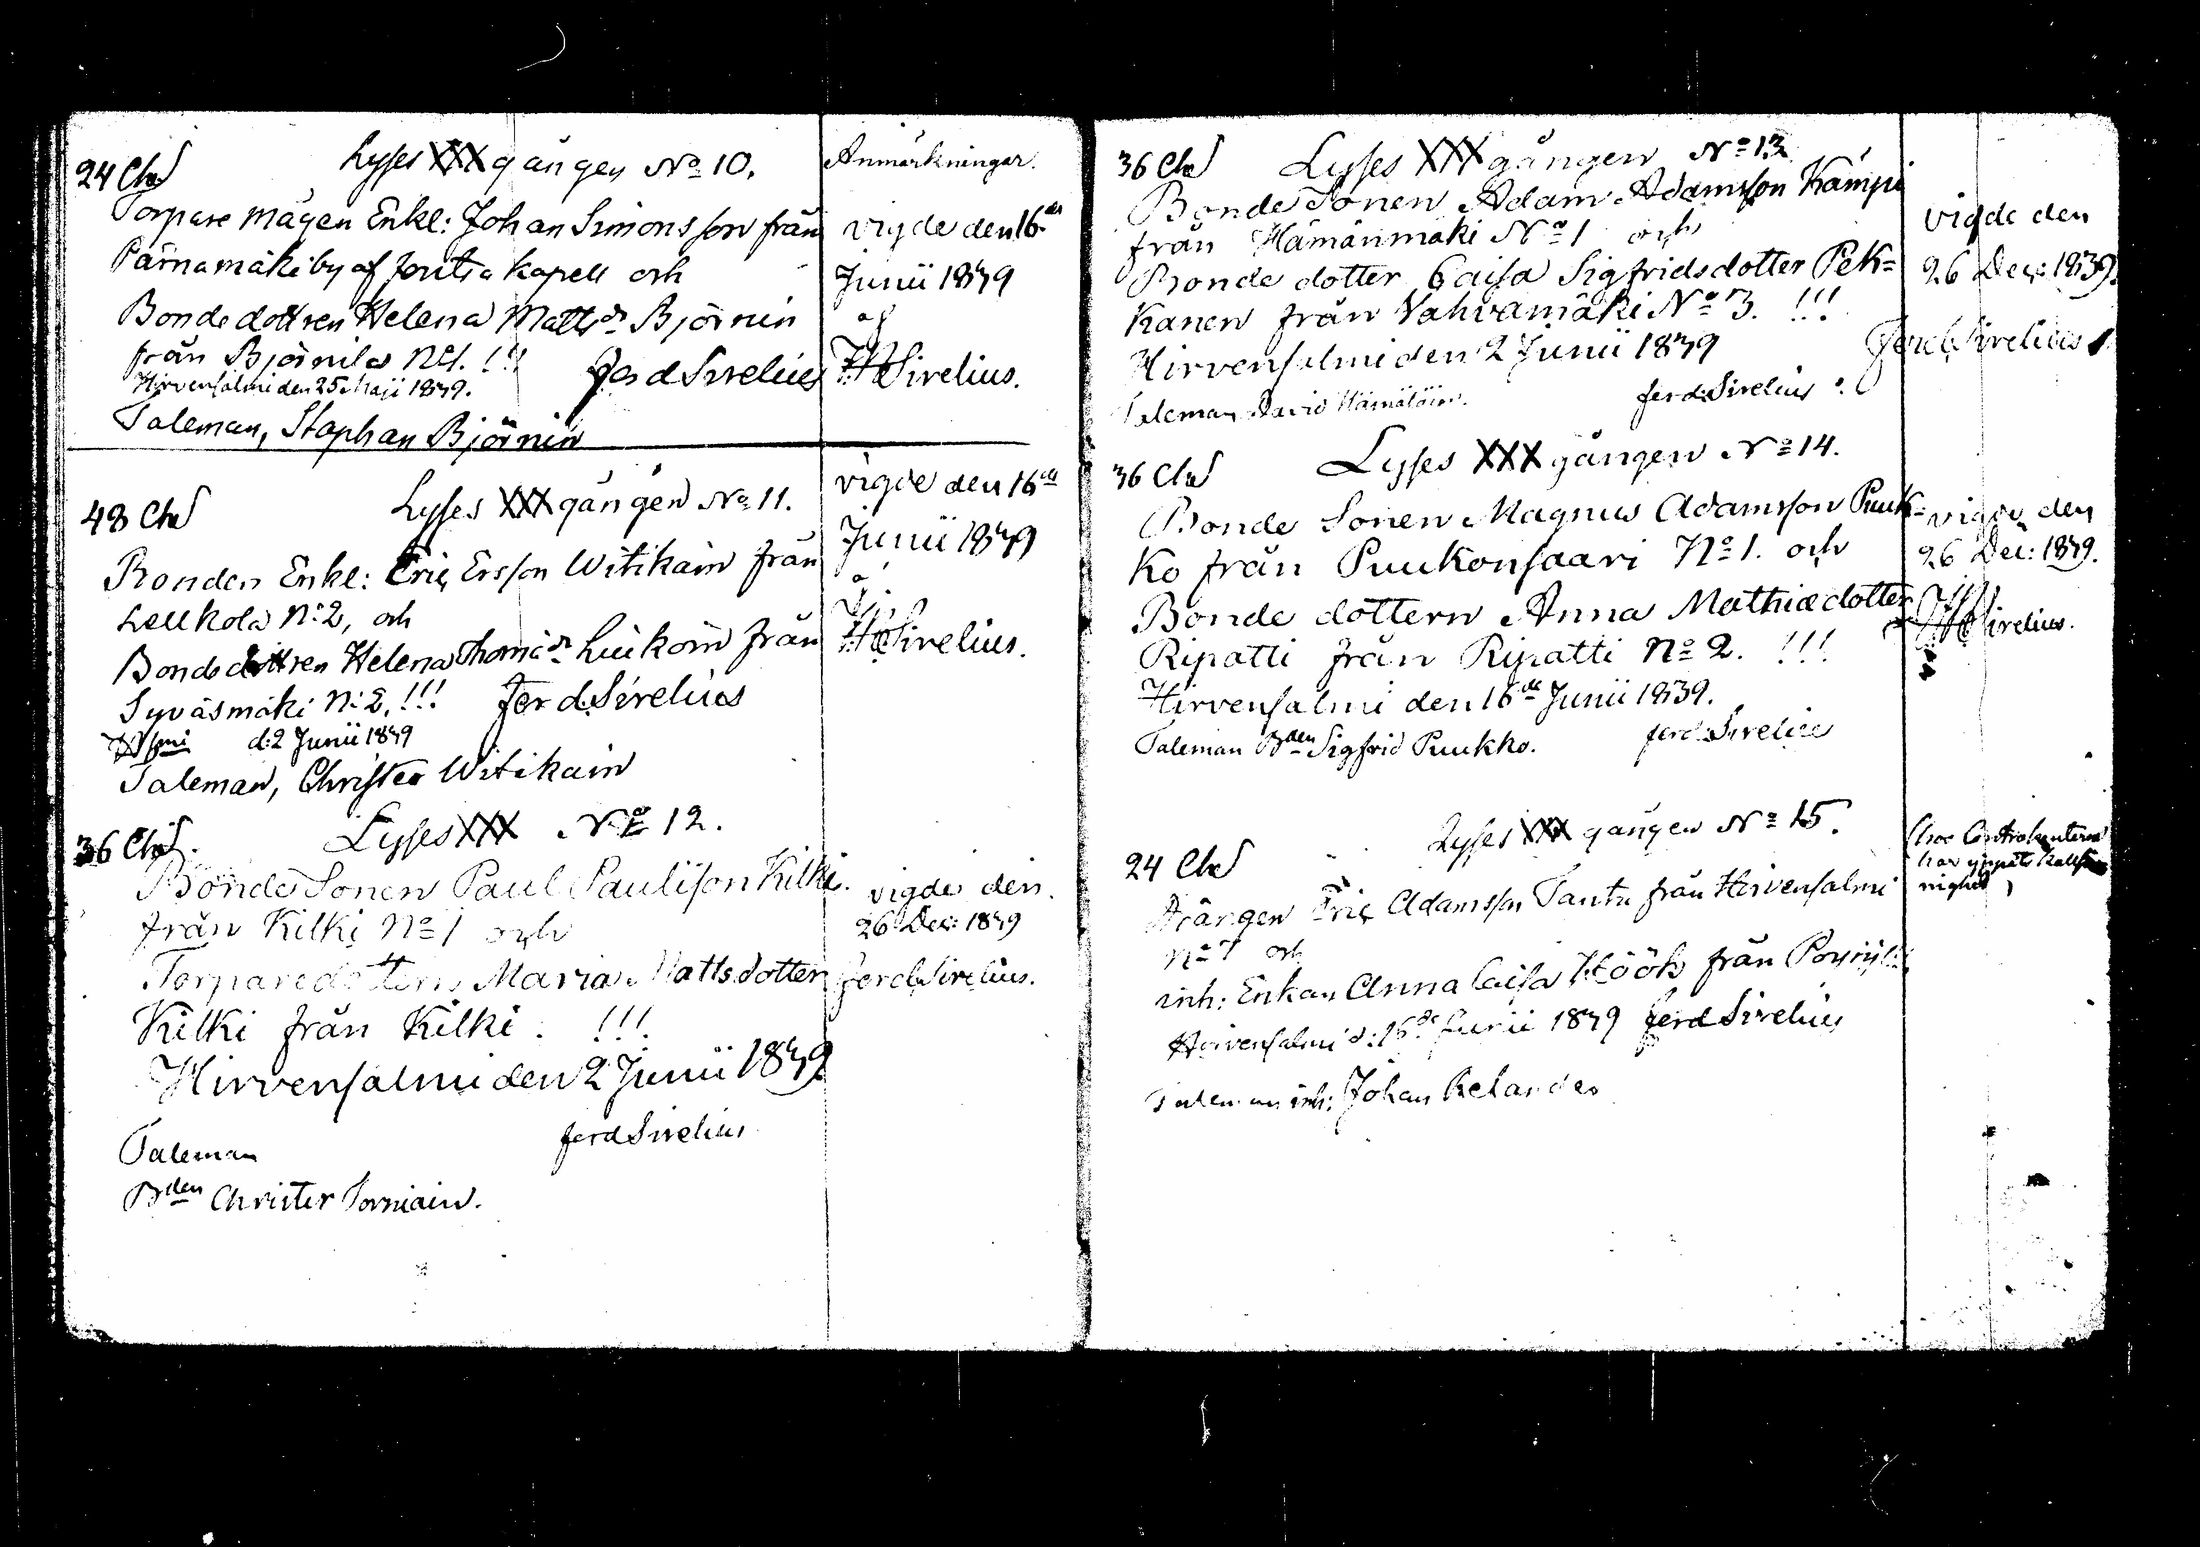 24 Cha
Lyses XXX gången No 10.
Torpare mågen Enkl: Johan Simonsson från
Pärnamäki by af Joutsa Kapell och
Bonde dottren Helena Matts dr Björnin
från Björnilä No 1. !!!
Hirvensalmi den 25 Maji 1839.
Ferd Sirelius
Taleman, Staphan Björnin
Anmärkningar.
vigde den 16de
Junii 1839
af
Sirelius.
48 Cha
Lyses XXX gången No 11.
Bonden Enkl: Eric Ersson Witikain från
Leukola N:2, och
Bonde dottren Helena Thomæ dr Liukoin från
Syväsmäki N:2. !!!
Ferd. Sirelius
d: 2 Junii 1839
Taleman, Christer Witikain
vigde den 16de
Junii 1839
af
Sirelius.
36 Cha
Lyses XXX No 12.
Bonde Sonen Paul Paulison Kilki
från Kilki No 1 och
Torparedottern Maria Mattsdotter
Kilki från Kilki. !!!
Hirvensalmi den 2 Junii 1839
ferd Sirelius
Taleman
Bden Christer Torniain.
vigde den
26 Dec: 1839
ferd Sirelius.
36 Cha
Lyses XXX gången No 13
Bonde Sonen Adam Adamsson Kämpi
från Hämänmäki No 1 och
Bonde dotter Caisa Sigfridsdotter Pek=
kanen från Vahvamäki No 3. !!!
Hirvensalmi den 2 Junii 1839
Taleman David Hämäläin.
ferd: Sirelius
vigde den
26 Dec: 1839.
Ferd. Sirelius
36 Cha
Lyses XXX gången No 14.
Bonde Sonen Magnus Adamsson Puuk=
ko från Puukonsaari No 1. och
Bonde dottern Anna Mathiædotter
Ripatti från Ripatti No 2. !!!
Hirvensalmi den 16de Junii 1839.
Taleman Bden Sigfrid Puukko.
ferd: Sirelius
vigde den
26 Dec: 1839.
Sirelius.
24 Cha
Lyses XXX gången No 15.
Drängen Eric Adamsson Tantu från Hirvensalmi
och
inh: Enkan Anna Caisa Höök från
Hirvensalmi d: 16de Junii 1839 ferd Sirelius
Taleman inh: Johan Relander